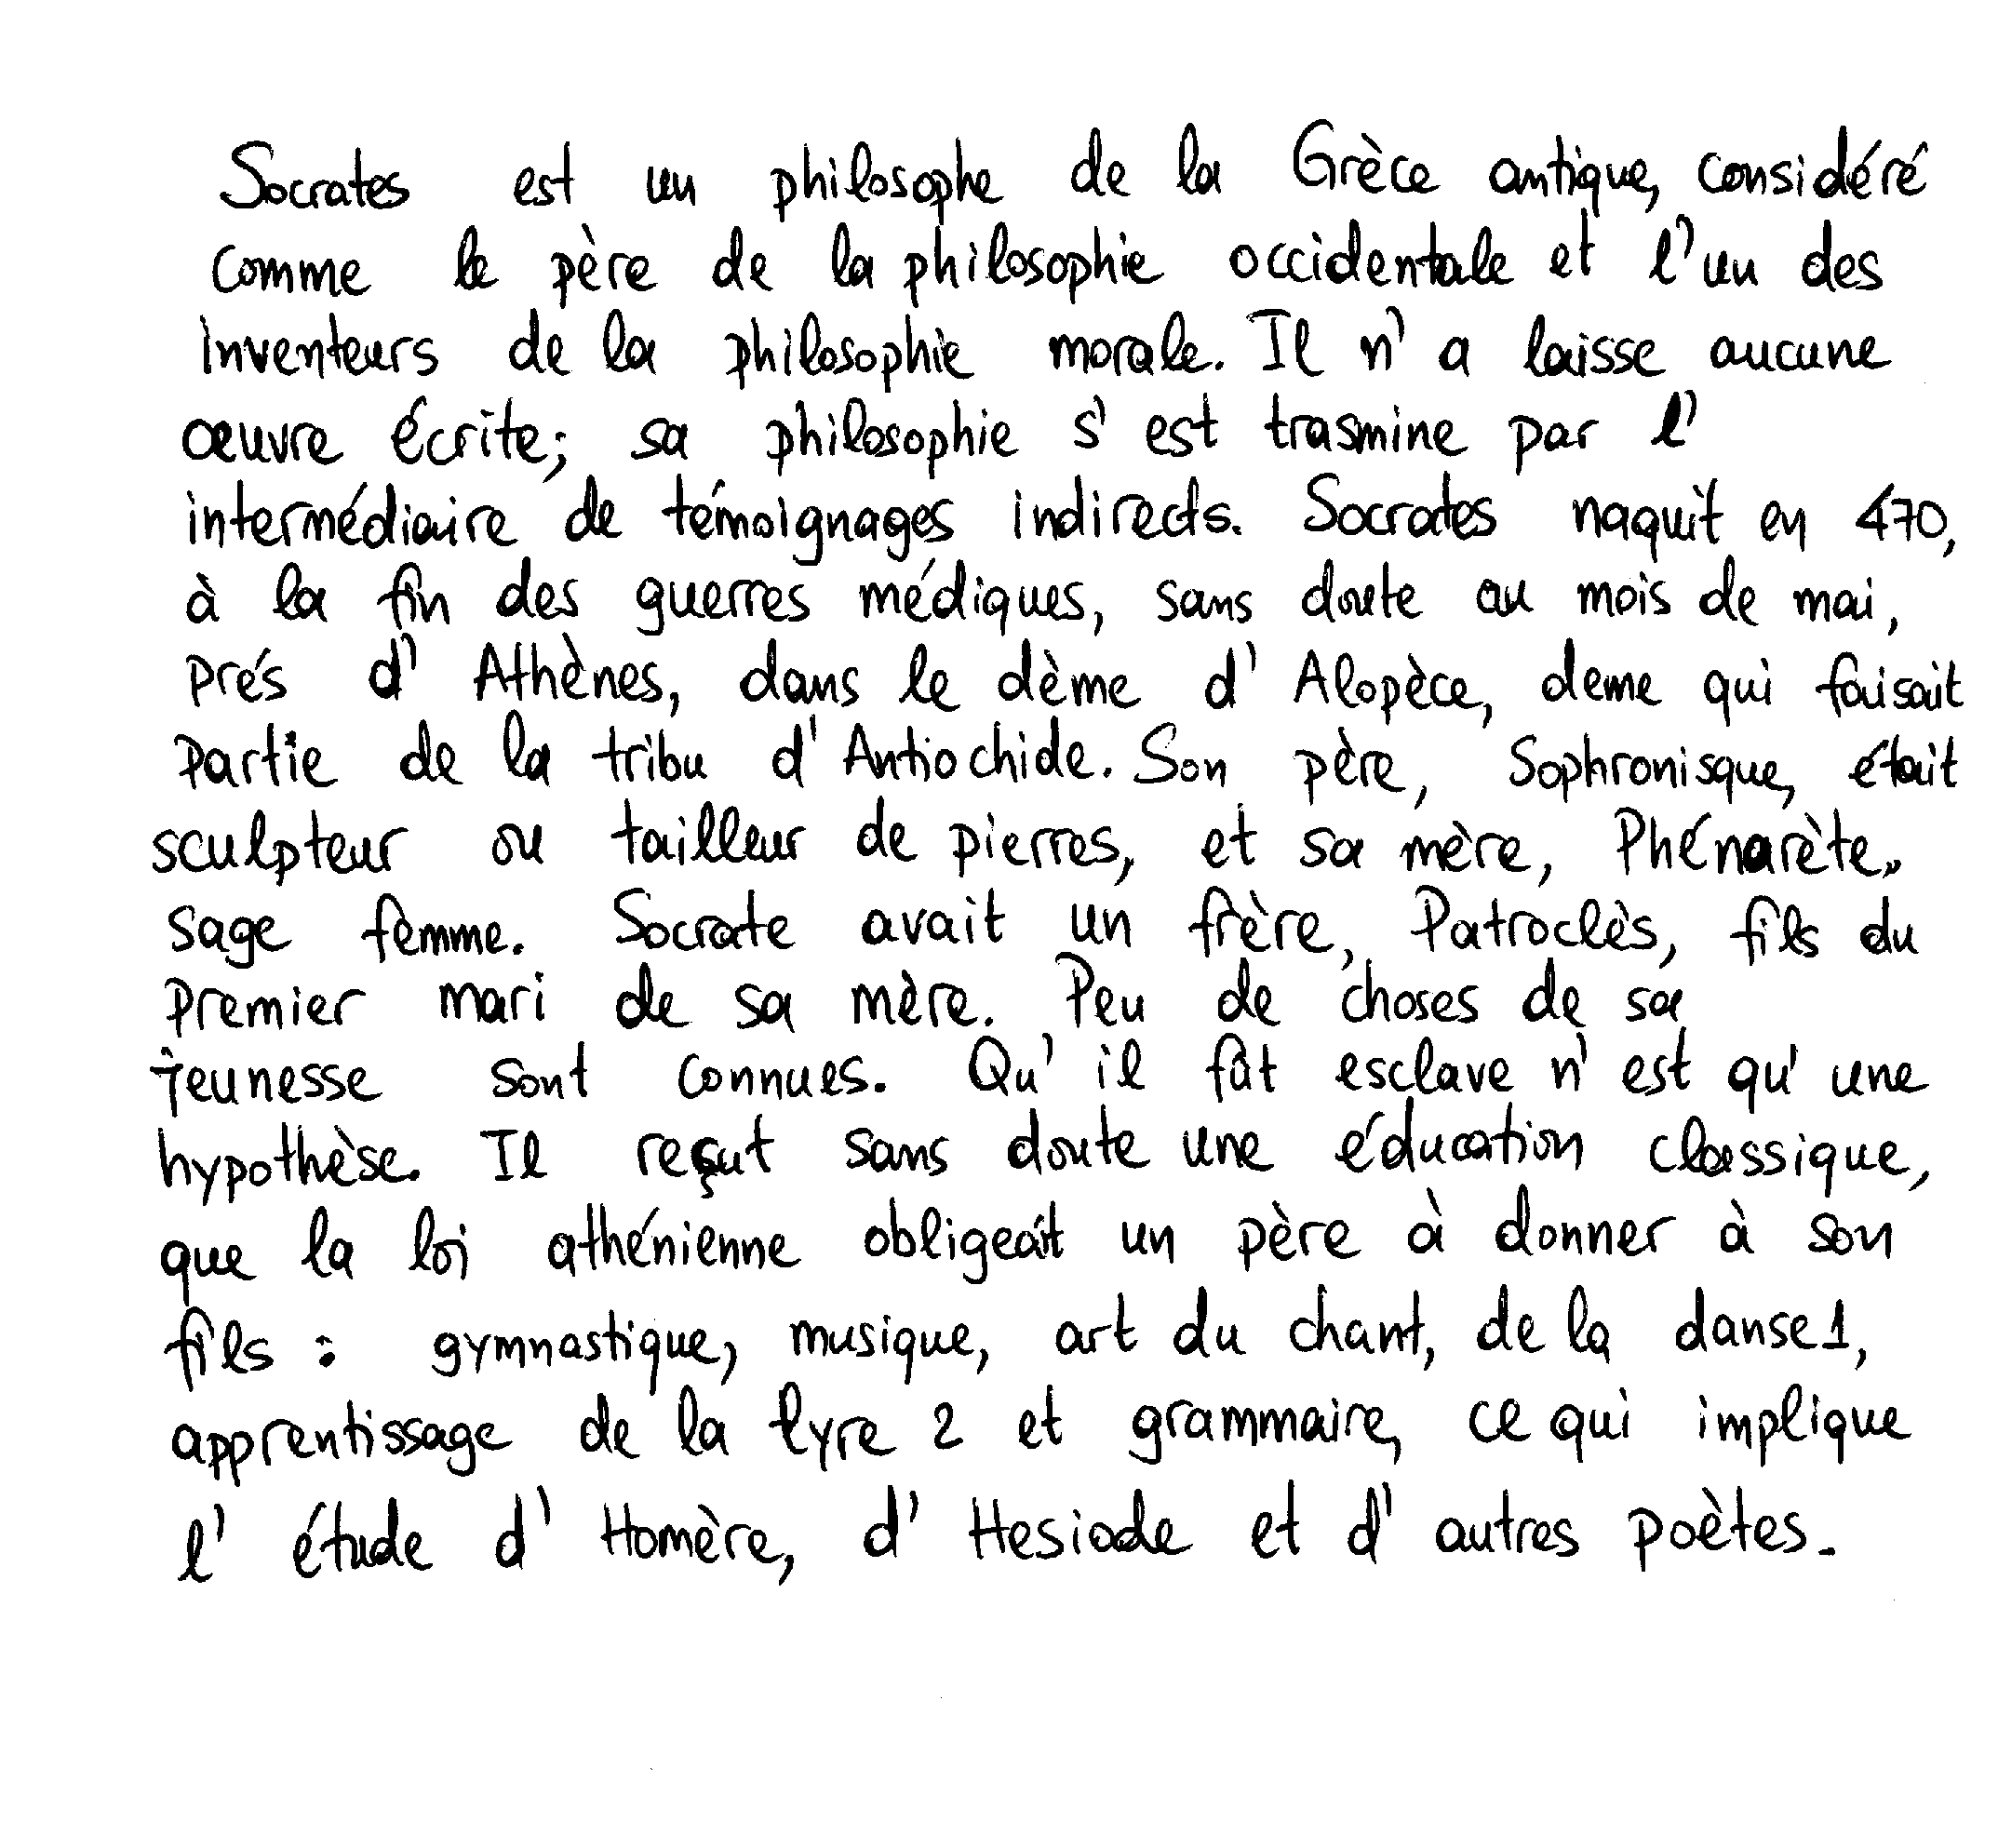 Socrates est un philosophe de la Grèce antique, considéré
comme le père de la philosophie occidentale et l'un des
inventeurs de la philosophie morale. Il n'a laisse aucune
œuvre écrite; sa philosophie s'est trasmine par l'
intermédiaire de témoignages indirects. Socrates naquit en 470,
à la fin des guerres médiques, sans doute au mois de mai,
prés d'Athènes, dans le dème d'Alopèce, deme qui faisait
partie de la tribu d'Antiochide. Son père, Sophronisque, était
sculpteur ou tailleur de pierres, et sa mère, Phénarète,
sage femme. Socrate avait un frère, Patroclès, fils du
premier mari de sa mère. Peu de choses de sa
jeunesse sont connues. Qu'il fût esclave n'est qu'une
hypothèse. Il reçut sans doute une éducation classique,
que la loi athénienne obligeait un père à donner à son
fils : gymnastique, musique, art du chant, de la danse1,
apprentissage de la lyre 2 et grammaire, ce qui implique
l'étude d'Homère, d'Hesiode et d'autres poètes.